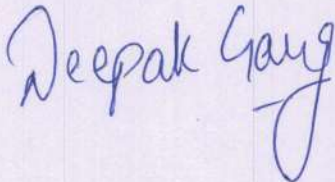 Deepak Garg